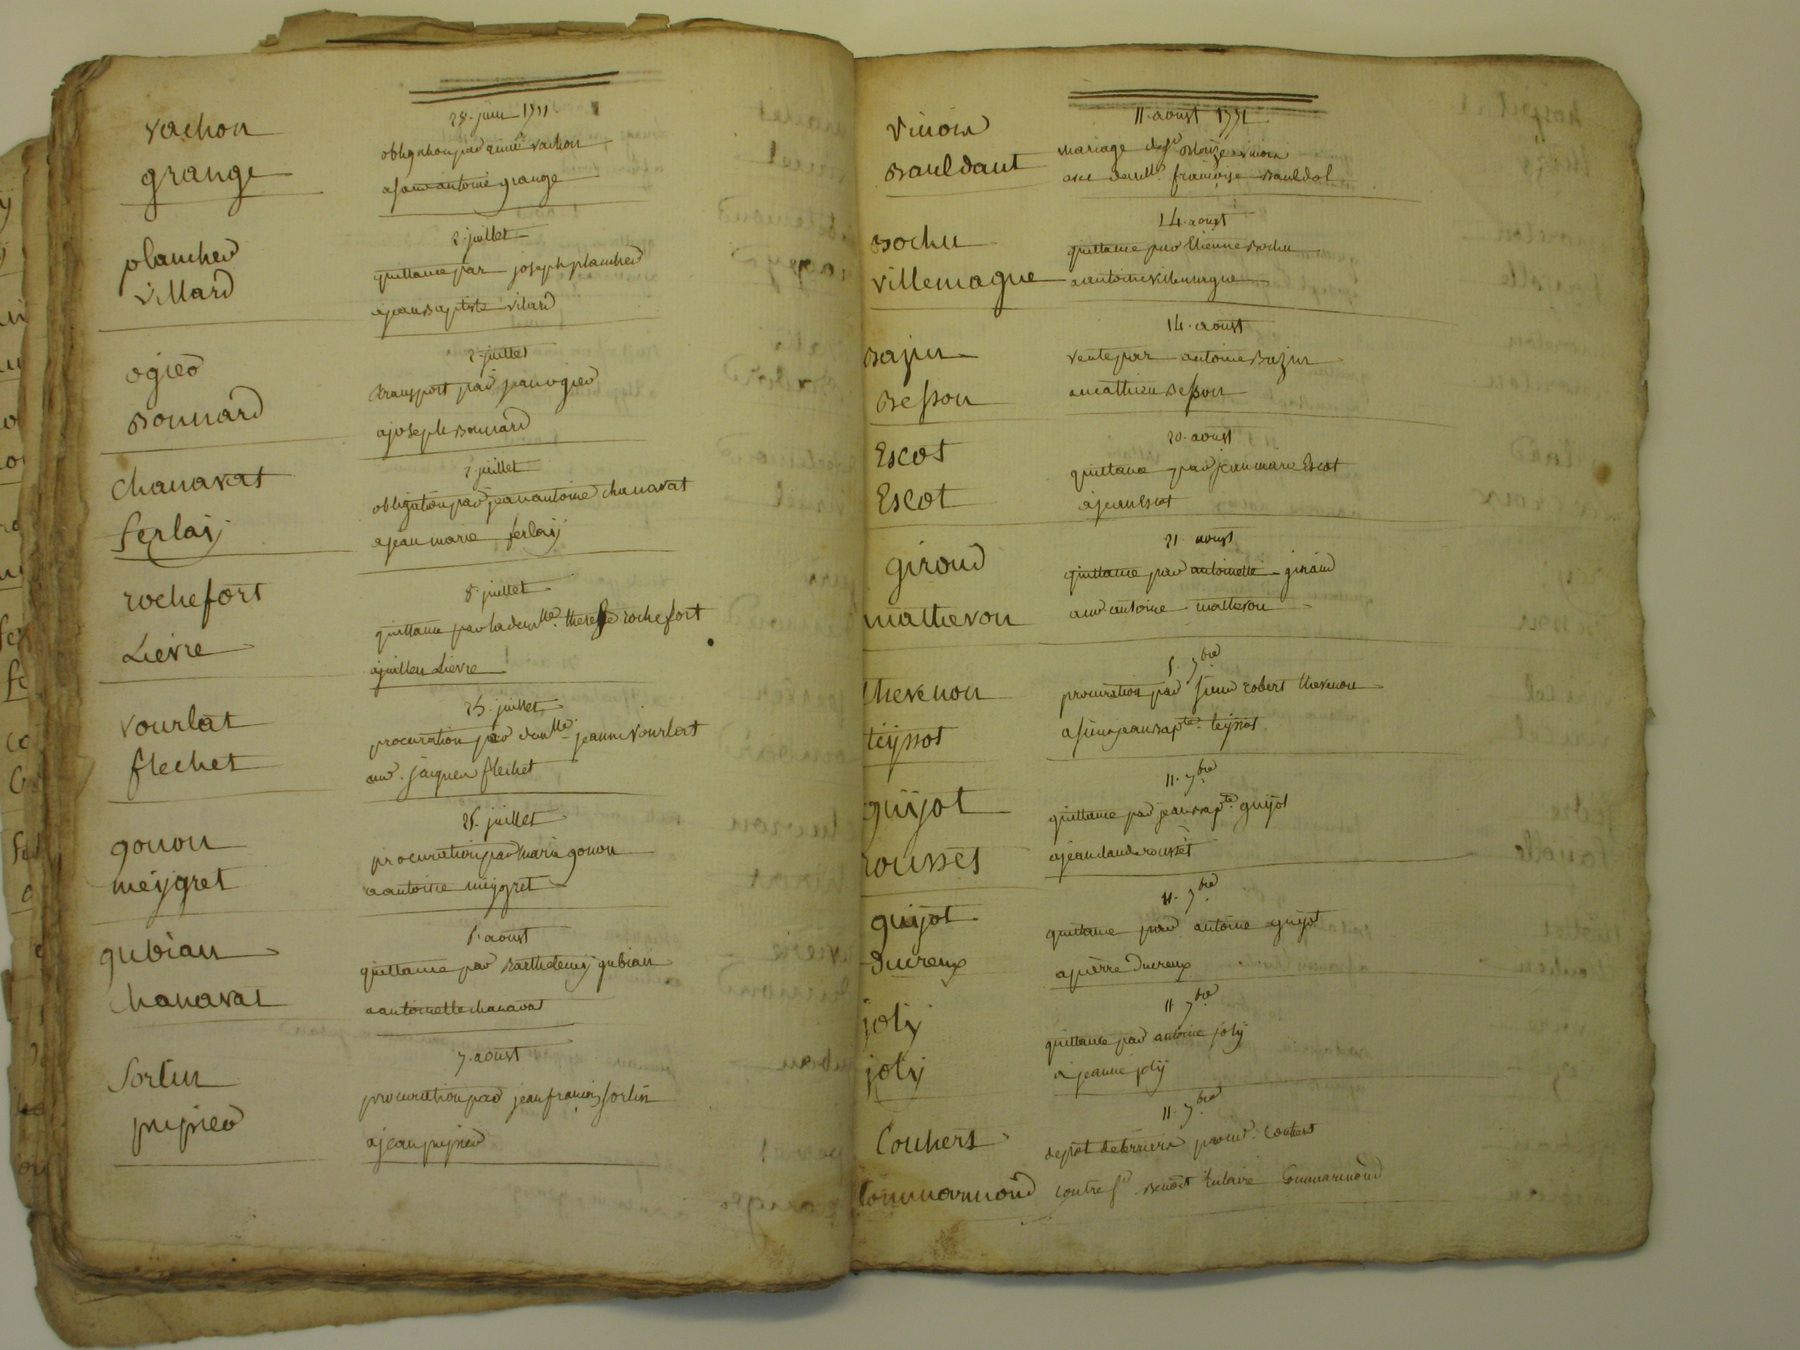 vachon
grange
28. juin 1771
obligation par aimé vachon
a jean antoine grange
plancher
villard
2. juillet
quittance par joseph plancher
a jean Baptiste vilard
ogier
Bonnard
2. juillet
transport par jean ogier
a joseph Bonnard
Chanavat
ferlaÿ
2 juillet
obligation par jean antoine chanavat
a jean marie ferlaÿ
rochefort
Lievre
8. juillet
quittance par la demlle therese rochefort
a julien Lievre
vourlat
flechet
25. juillet
procuration par demlle jeanne vourlat
a mr. jacques flechet
gonon
meÿgret
28. juillet
procuration par marie gonon
a antoine meÿgret
gubian
Chanavat
1. aoust
quittance par Barthelemÿ gubian
a antoinette chanavat
Sorlin
pupier
7. aoust
procuration par jean françois sorlin
a jean pupier
Vinoin
Bauldaut
11. aoust 1771
mariage de sr Blaize vinoin
avec demlle françoise
Bochu
villemagne
14. aoust
quittance par Etienne Bochu
a antoine villemagne
Bajin
Besson
14. aoust
vente par antoine Bajin
a mathieu Besson
Escot
Escot
20. aoust
quittance par jean marie Escot
a jean Escot
giroud
matheron
21. aoust
quittance par antoinette giraud
a mr antoine matheron
thevenon
teÿssot
5. 7bre
procuration par sieur robert thevenon
a sieur jean Bapte teÿssot
guÿot
rousset
11. 7bre
quittance par jean Bapte guÿot
a jean claude rousset
guÿot
Ducreux
11. 7bre
quittance par antoine guÿot
a pierre Ducreux
jolÿ
jolÿ
11 7bre
quittance par antoine jolÿ
a jeanne jolÿ
Couhert
Commarmond
11. 7bre
depot par mr. Couhert
contre sr. Benoit Commarmond